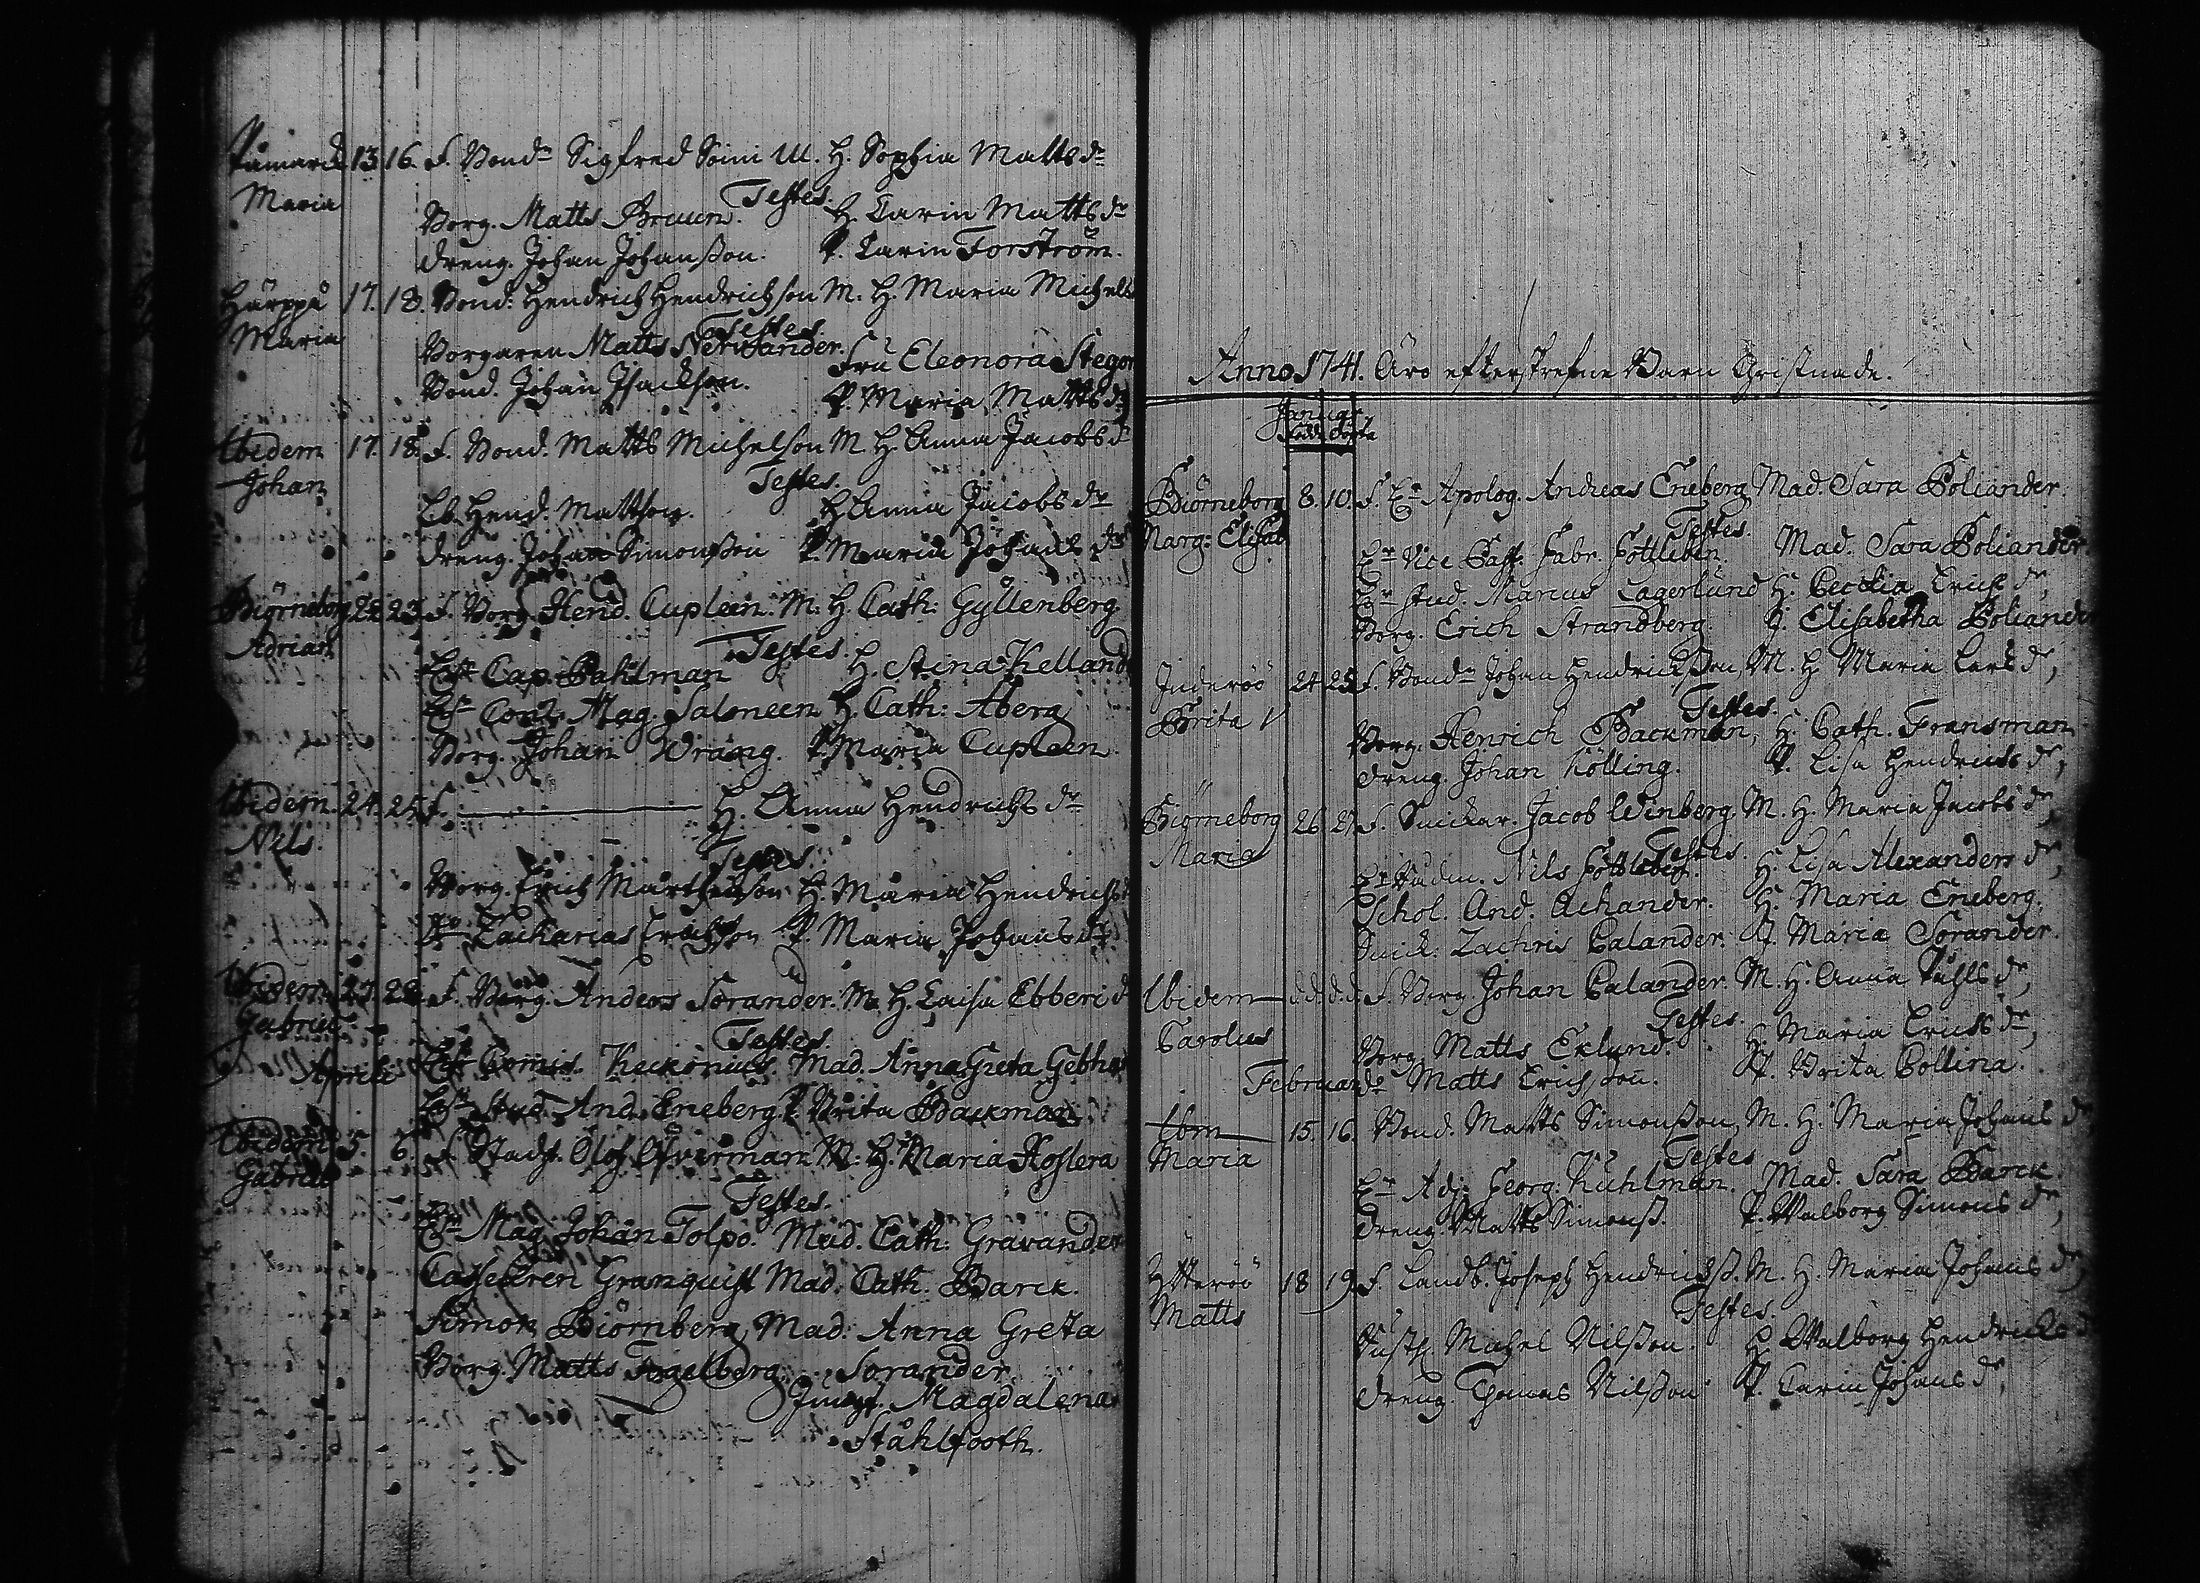 Påmarck 13 16. F. Bond: Sigfred Soini M. H. Sophia Matts dr
Maria Testes.
Borg. Matts Bruun. H. Carin Matts dr
Dreng. Johan Johanßon. P. Carin Forström.
Härppå 17. 18. Bond: Hendrich Hendrichson M. H. Maria Michels
Maria Testes.
Borgaren Matts Nervander. Fru Eleonora Stegor
Bond. Johan Isackson. P. Maria Matts dr
Ibidem 17. 18. F. Bond. Matts Michelson M. H. Anna Jacobs dr
Johan Testes.
Hend. Mattson. H. Anna Jacobs dr
Dreng. Johan Simonßon P. Maria Johans dr
Biörneborg 22 23 F. Borg. Hend. Cupleen. M. H. Cath: Gyllenberg
Adrian Testes.
Hr Cap. Pahlman H. Stina Kelland
Hr Con. Mag. Saloneen H. Cath: Åberg
Borg. Johan Wrang. P. Maria Cupleen
Ibidem 24. 25. F. H. Anna Hendrichs dr
Nils. Testes.
Borg. Erich Mårthenson H. Maria Hendrichs
Zacharias Erichson P. Maria Johans dr
Ibidem 27. 28. F. Borg. Anders Sorander. M. H. Caisa Ebberi d
Gabriel Testes.
Aprili Hr Comis. Keckonius. Mad. Anna Greta Gebhar
Hr Stud. And. Eneberg P. Brita Backman
Ibidem 5. 6. F. Stadsf. Olof Öfverman M. H. Maria Hoslera
Gabriel Testes.
Hr Mag. Johan Tolpo. Mad. Cath: Gravander
Casseuren Granquist Mad. Cath. Barck.
Simon Biörnberg Mad. Anna Greta
Borg. Matts Fogelberg. Sorander.
Jungf. Magdalena
Ståhlfooth.
Anno 1741. Äro efterskrefne Barn Christnade.
Januar
född döpta
Biörneborg 8. 10. F. Hr Apolog. Andreas Eneberg Mad. Sara Poliander.
Marg: Elisab Testes.
Hr Vice Past. Gabr. Fottleben. Mad. Sara Poliander.
Hr Stud. Marcus Lagerlund H. Cecilia Erichs dr
Borg. Erich Strandberg. J. Elisabetha Poliander
Inderöö 24 25 F. Bond: Johan Hendricksson, M. H. Maria Lars dr
Brita Testes.
Borg. Henrich Backman, H. Cath. Fransman
Dreng. Johan Kölling. P. Lisa Hendricks dr
Biörneborg 26 27 F. Snickar. Jacob Winberg M. H. Maria Jacobs dr
Maria Testes.
Nils Fottleben. H. Lisa Alexanders dr
Schol. And. Achander. H. Maria Eneberg.
Snick: Zachris Calander. J. Maria Sorander.
Ibidem d. d. d. d. F. Borg. Johan Calander. M. H. Anna Påhls dr
Carolus Testes.
Borg. Matts Eklund. H. Maria Ericks dr
Februar. Matts Erichsson. P. Brita Collina.
Ibm 15. 16. Bond. Matts Simonßon, M. H. Maria Johans dr
Maria Testes
Hr Adj. Georg: Kuhlman. Mad. Sara Barck.
Dreng. Matts Simonß. P. Walborg Simons dr
Ytteröö 18 19. F. Landb. Joseph Hendricksß. M. H. Maria Johans dr
Matts Testes.
Michel Nilsson. H. Walborg Hendricks d
Dreng. Thomas Nilsson P. Carin Johans dr